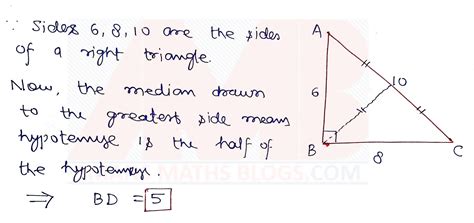 ∵ Sides 6, 8, 10 are the sides
of a right triangle.
Now, the median drawn
to the greatest side means
hypotenuse is the half of
the hypotenuse.
⇒ BD = 5
A
10
6
B
8
C
MATHS BLOGS.COM